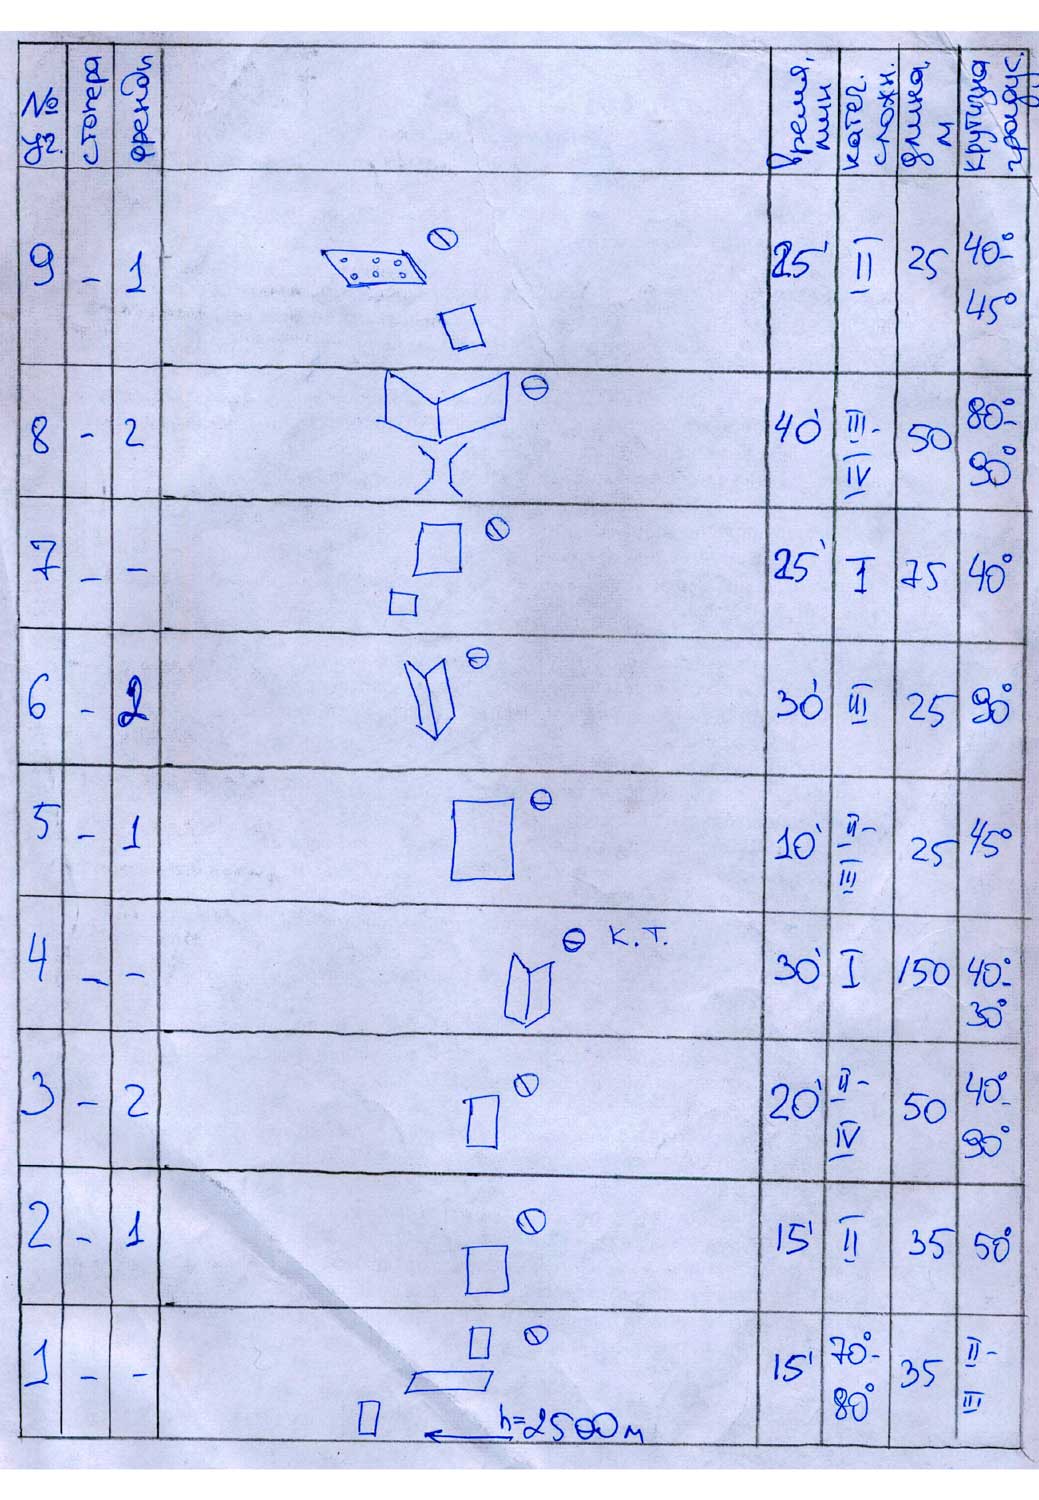 № уч. стопера френды время, мин катег. сложн. длина, м крутизна градус.
9 - 1 25' II 25 40°-45°
8 - 2 40' III-IV 50 80°-90°
7 - - 25' I 75 40°
6 - 2 30' III 25 90°
5 - 1 10' II-III 25 45°
4 - - К.Т. 30' I 150 40°-30°
3 - 2 20' II-IV 50 40°-90°
2 - 1 15' II 35 50°
1 - - 15' 70°-80° 35 II-III
h=2500м